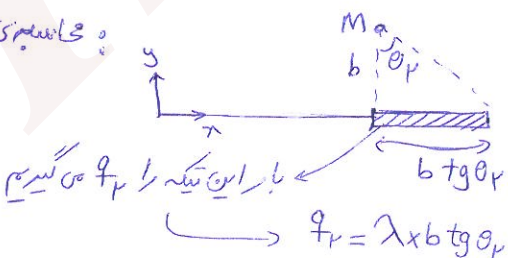 محاسبه‌ی :
M a
y
b θ₂
x
b tgθ₂
بار این تیکه را q₂ می گیریم
q₂ = λ × b tgθ₂